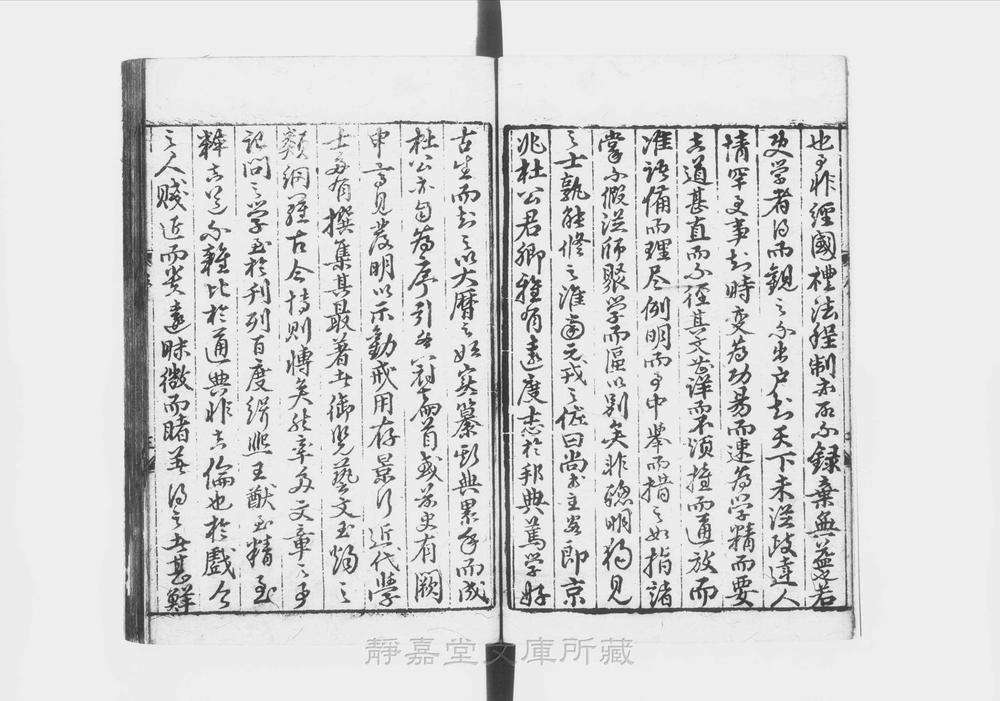 也事非經國禮法程制亦所不錄棄無益也若
使学者得而觀之不出户知天下未從政達人
情罕更事知時变為功易而速為学精而要
其道甚直而不徑其文甚詳而不煩推而通放而
准語備而理尽例明而事中舉而措之如指諸
掌不假從師聚学而區以别矣非聰明獨見
之士孰能修之淮南元戎之佐曰尚書主客郎京
兆杜公君卿雅有遠度志於邦典篤学好
古生而知之以大曆之始实纂斯典累年而成
杜公亦自為序引各冠篇首或前史有闕
申高見發明以示勸戒用存景行近代學
士多有撰集其最著者御覽藝文玉燭之
類網羅古今博則博矣然率多文章之事
記問之学至於刊列百度緝熙王猷至精至
粹其道不雜比於通典非其倫也於戲今
之人賤近而貴遠昧微而睹著得之者甚鮮
靜嘉堂文庫所藏